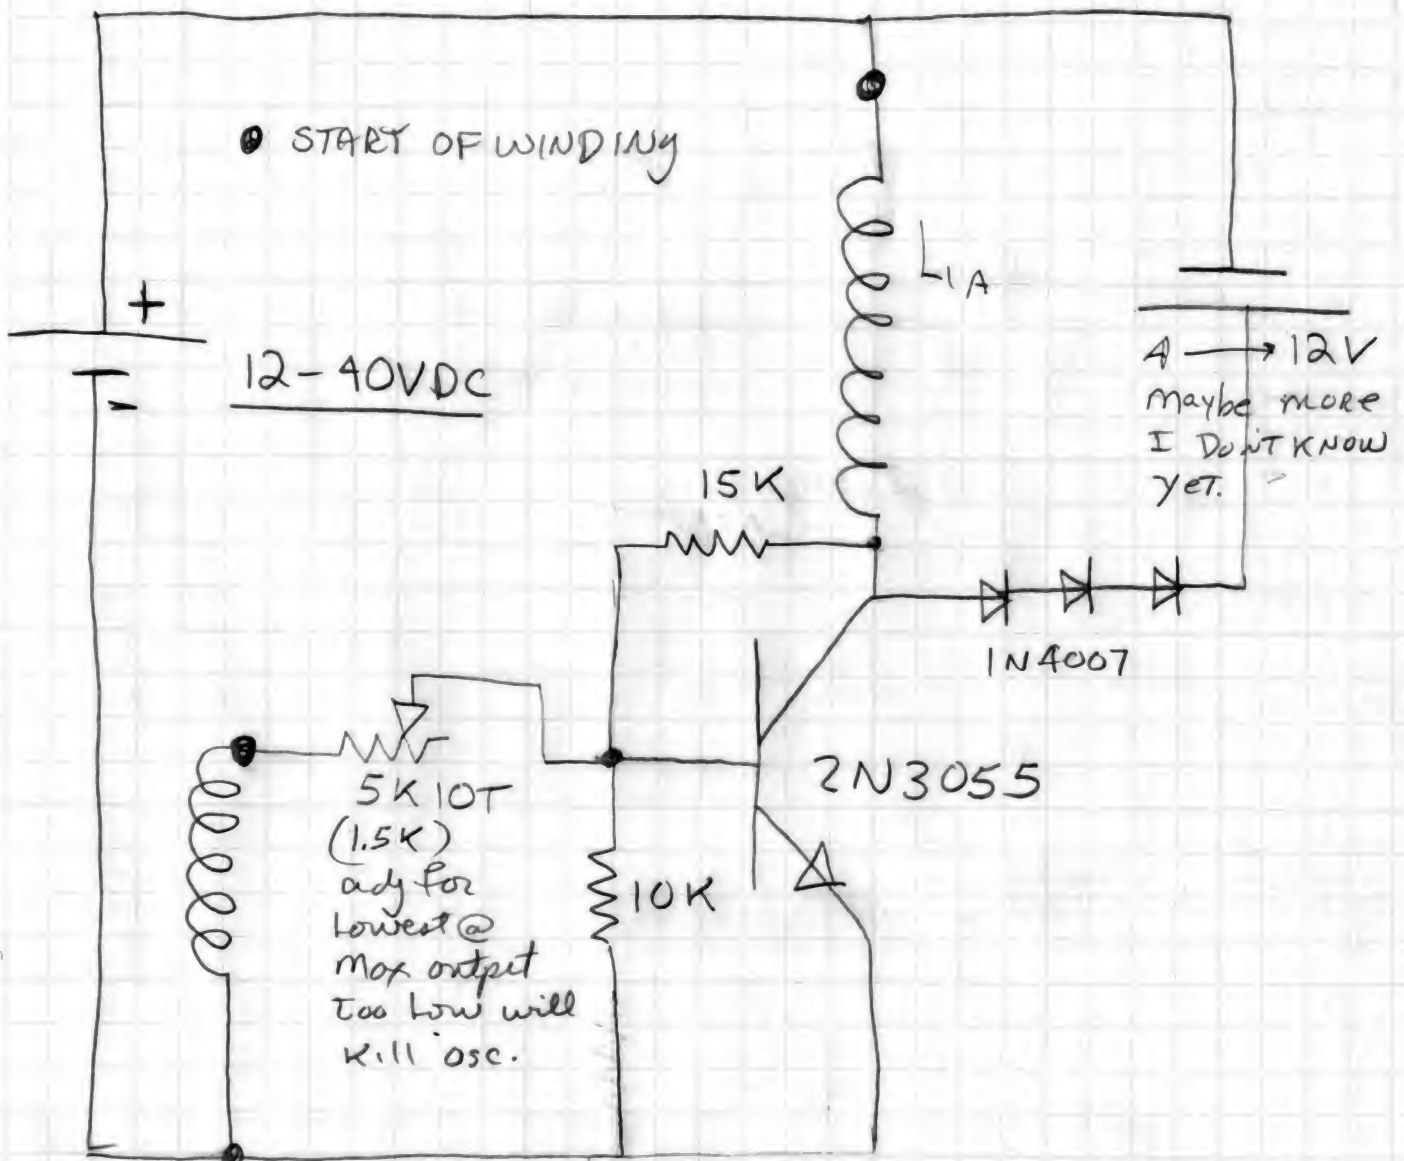 START OF WINDING
+
-
12-40VDC
L1A
4 → 12V
Maybe more
I Don't KNOW
yet.
15K
1N4007
2N3055
5K 10T
(1.5K)
adj for
Lowest @
Max output
Too Low will
Kill osc.
10K